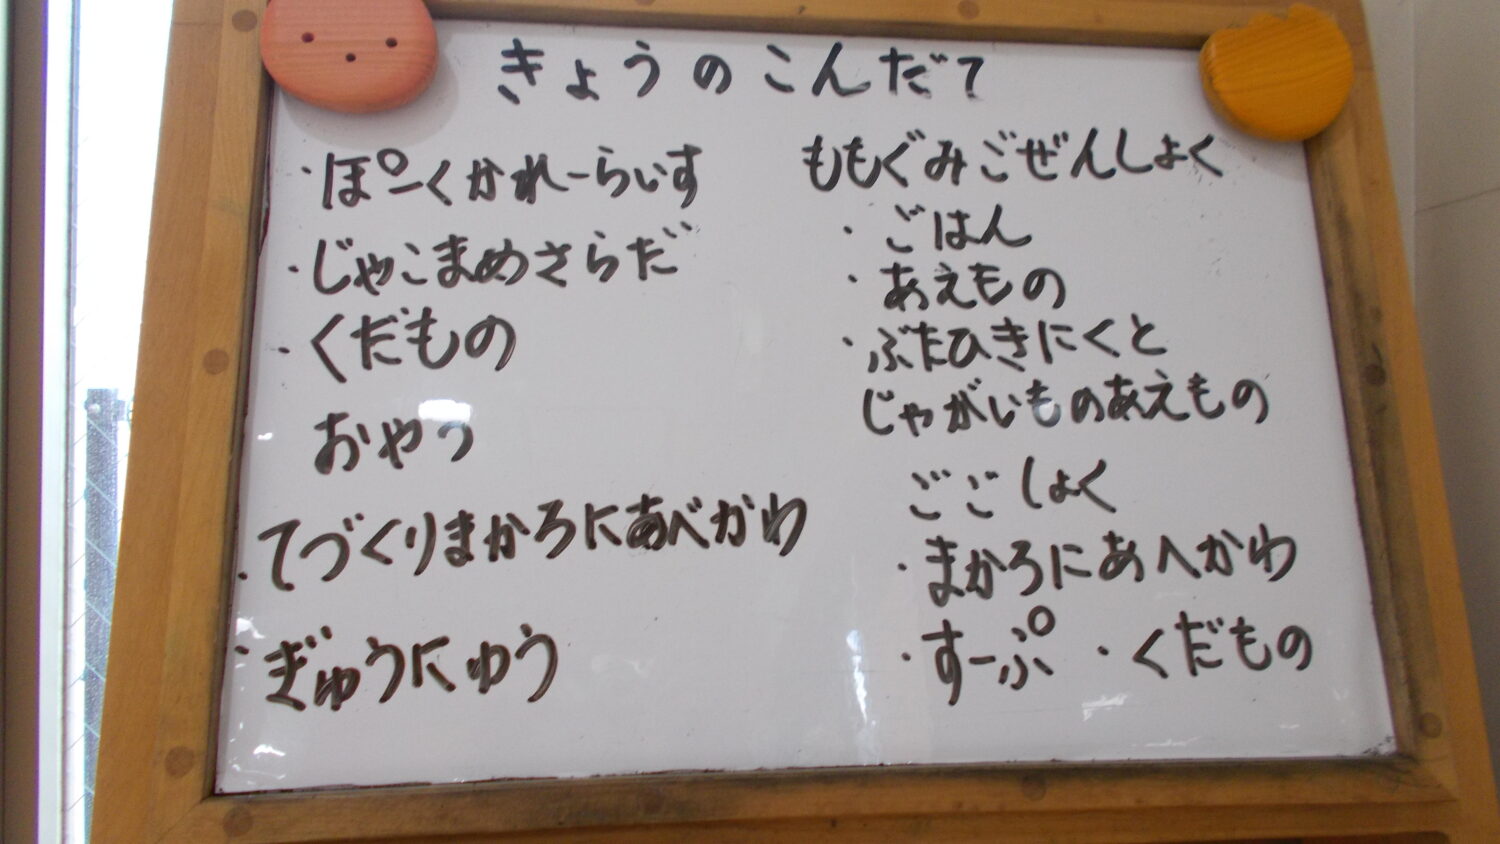 きょうのこんだて
・ぽーくかれーらいす
・じゃこまめさらだ
・くだもの
おやつ
・てづくりまかろにあべかわ
・ぎゅうにゅう
ももぐみごぜんしょく
・ごはん
・あえもの
・ぶたひきにくと
じゃがいものあえもの
ごごしょく
・まかろにあへかわ
・すーぷ ・くだもの